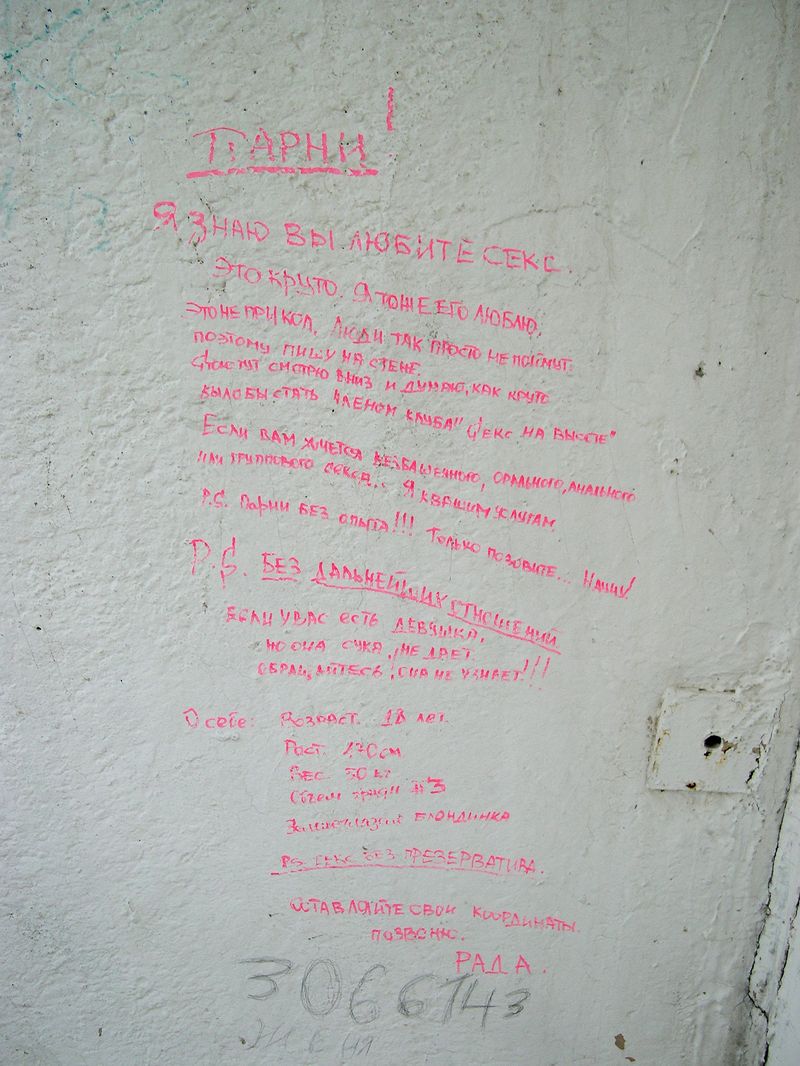 ПАРНИ!
Я ЗНАЮ ВЫ ЛЮБИТЕ СЕКС.
ЭТО КРУТО. Я ТОЖЕ ЕГО ЛЮБЛЮ.
ЭТО НЕ ПРИКОЛ. ЛЮДИ ТАК ПРОСТО НЕ ПОЙМУТ.
ПОЭТОМУ ПИШУ НА СТЕНЕ.
СТОЮ ТУТ СМОТРЮ ВНИЗ И ДУМАЮ, КАК КРУТО
БЫЛО БЫ СТАТЬ ЧЛЕНОМ КЛУБА "СЕКС НА ВЫСОТЕ"
ЕСЛИ ВАМ ХОЧЕТСЯ БЕЗБАШЕННОГО, ОРАЛЬНОГО, АНАЛЬНОГО
ИЛИ ГРУППОВОГО СЕКСА... Я К ВАШИМ УСЛУГАМ.
P.S. ПАРНИ БЕЗ ОПЫТА!!! ТОЛЬКО ПОЗОВИТЕ...
P.S. БЕЗ ДАЛЬНЕЙШИХ ОТНОШЕНИЙ
ЕСЛИ У ВАС ЕСТЬ ДЕВУШКА,
НО ОНА СУКА, НЕ ДАЕТ.
ОБРАЩАЙТЕСЬ, ОНА НЕ УЗНАЕТ!!!
О себе: Возраст. 18 лет.
Рост. 170 см.
Вес. 50 кг
Объем груди #3
БЛОНДИНКА
P.S. СЕКС БЕЗ ПРЕЗЕРВАТИВА.
ОСТАВЛЯЙТЕ СВОИ КООРДИНАТЫ.
ПОЗВОНЮ.
РАДА.
3066143